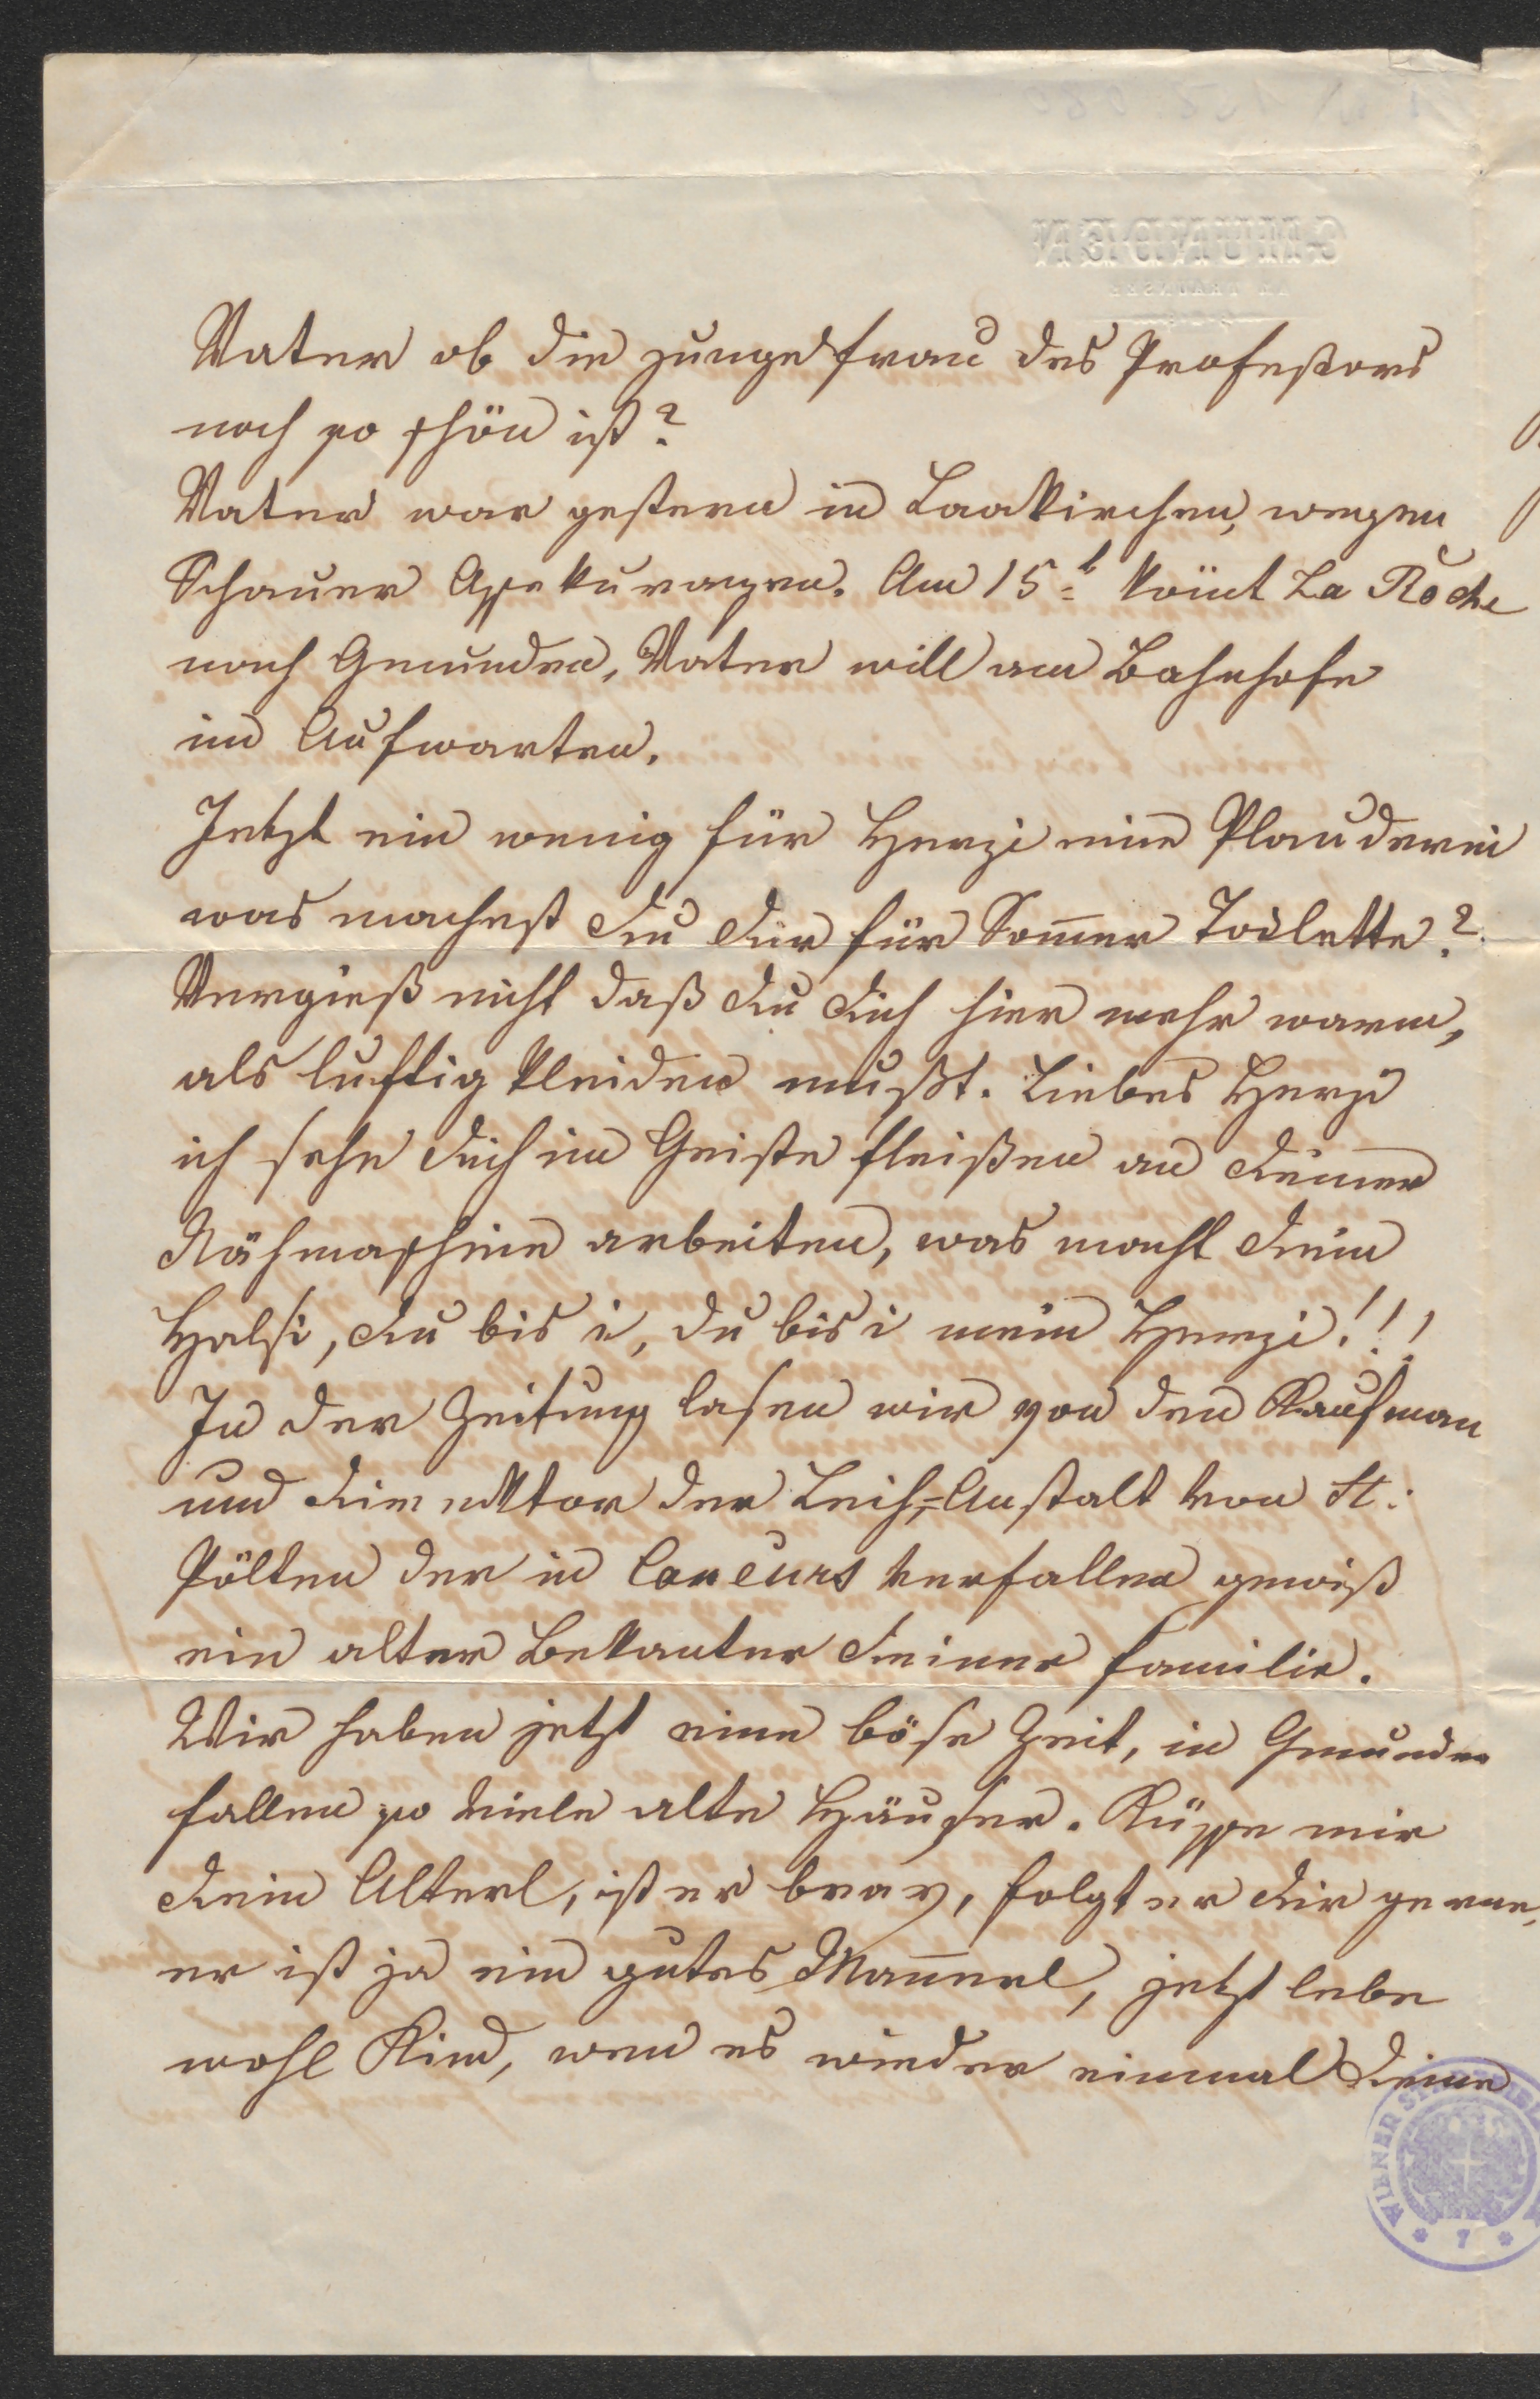 GMUNDEN
AM TRAUNSEE
Vater ob die junge Frau des Profeßors
noch so schön ist?
Vater war gestern in Laakirchen, wegen
Schauer Assekuranzen. Am 15t kom̄t La Roche
nach Gmunden, Vater will am Bahnhofe
im Aufwarten.
Jetzt ein wenig für Herzi eine Plauderei
was machest Du Dir für Som̄er Toilette?
Vergieß nicht daß Du Dich hier mehr warm,
als luftig kleiden mußt. Liebes Herzi
ich sehe Dich im Geiste fleißen an Deiner
Nähmaschine arbeiten, was macht Dein
Halsi, Du bis i, du bis i mein Herzi!!!
In der Zeitung lasen wir von den Kaufman
und Direcktor der Leih-Anstalt von St.
Pölten der in Concurs verfallen gewiß
ein alter Bekanter Deiner Familie.
Wir haben jetzt eine böse Zeit, in Gmunden
fallen so viele alte Häuser. Küsse mir
Dein Alterl, ist er brav, folgt er Dir gerne,
er ist ja ein gutes Man̄erl, jetzt lebe
wohl Kind, wen es wieder einmal Deine
WIENER
7